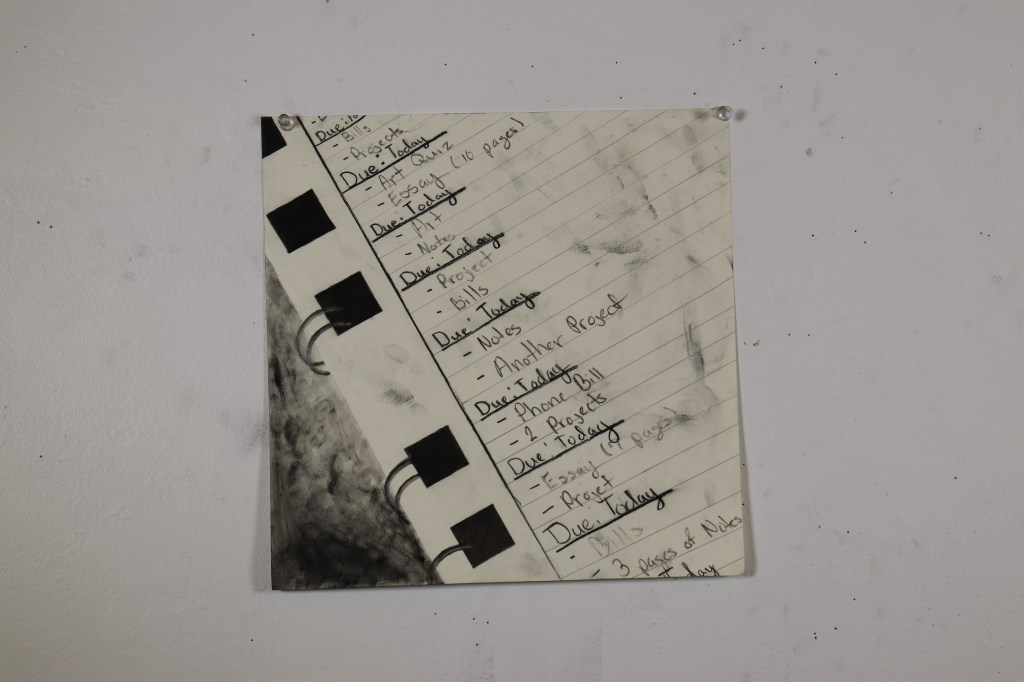 Due: To
- Bills
- Projects
Due: Today
- Art Quiz
- Essay (10 pages)
Due: Today
- Art
- Notes
Due: Today
- Project
- Bills
Due: Today
- Notes
- Another Project
Due: Today
- Phone Bill
- 2 Projects
Due: Today
- Essay (14 pages)
- Projet
Due: Today
- Bills
- 3 pages of Notes
day